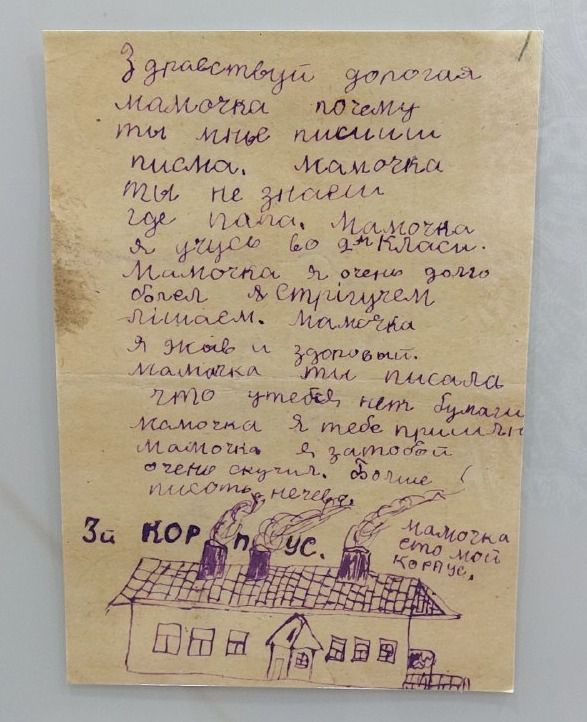 Здравствуй дорогая
мамочка почему
ты мнье писиш
писма. Мамочка
ты не знаеш
где папа. Мамочка
я учусь во 2м класи.
Мамочка я очень долго
болел я Стрігучем
лішаем. Мамочка
я жыв и здоровый.
мамачка ты писала
что утебя нет бумаги
мамочка я тебе пришлю
мамочка я затобой
очень скучил. Болше
писоть нечева.
3й КОРПУС.
мамочка
ето мой
корпус.